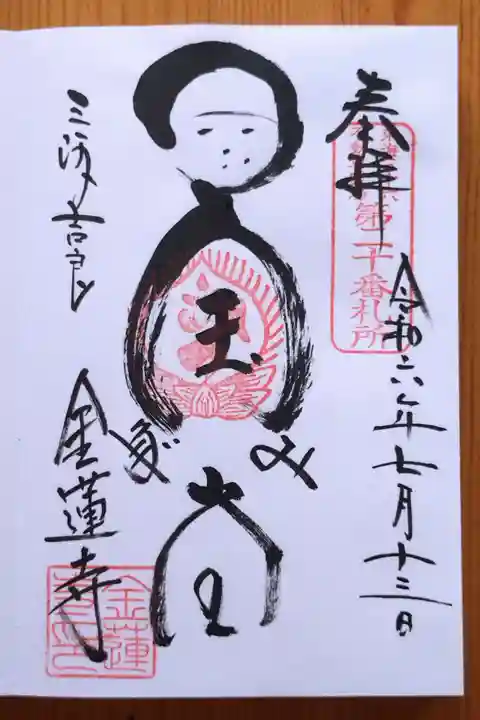 奉拝
第二十番札所
令和六年七月十三日
玉
みだ
堂
三河吉良
金蓮寺
金蓮